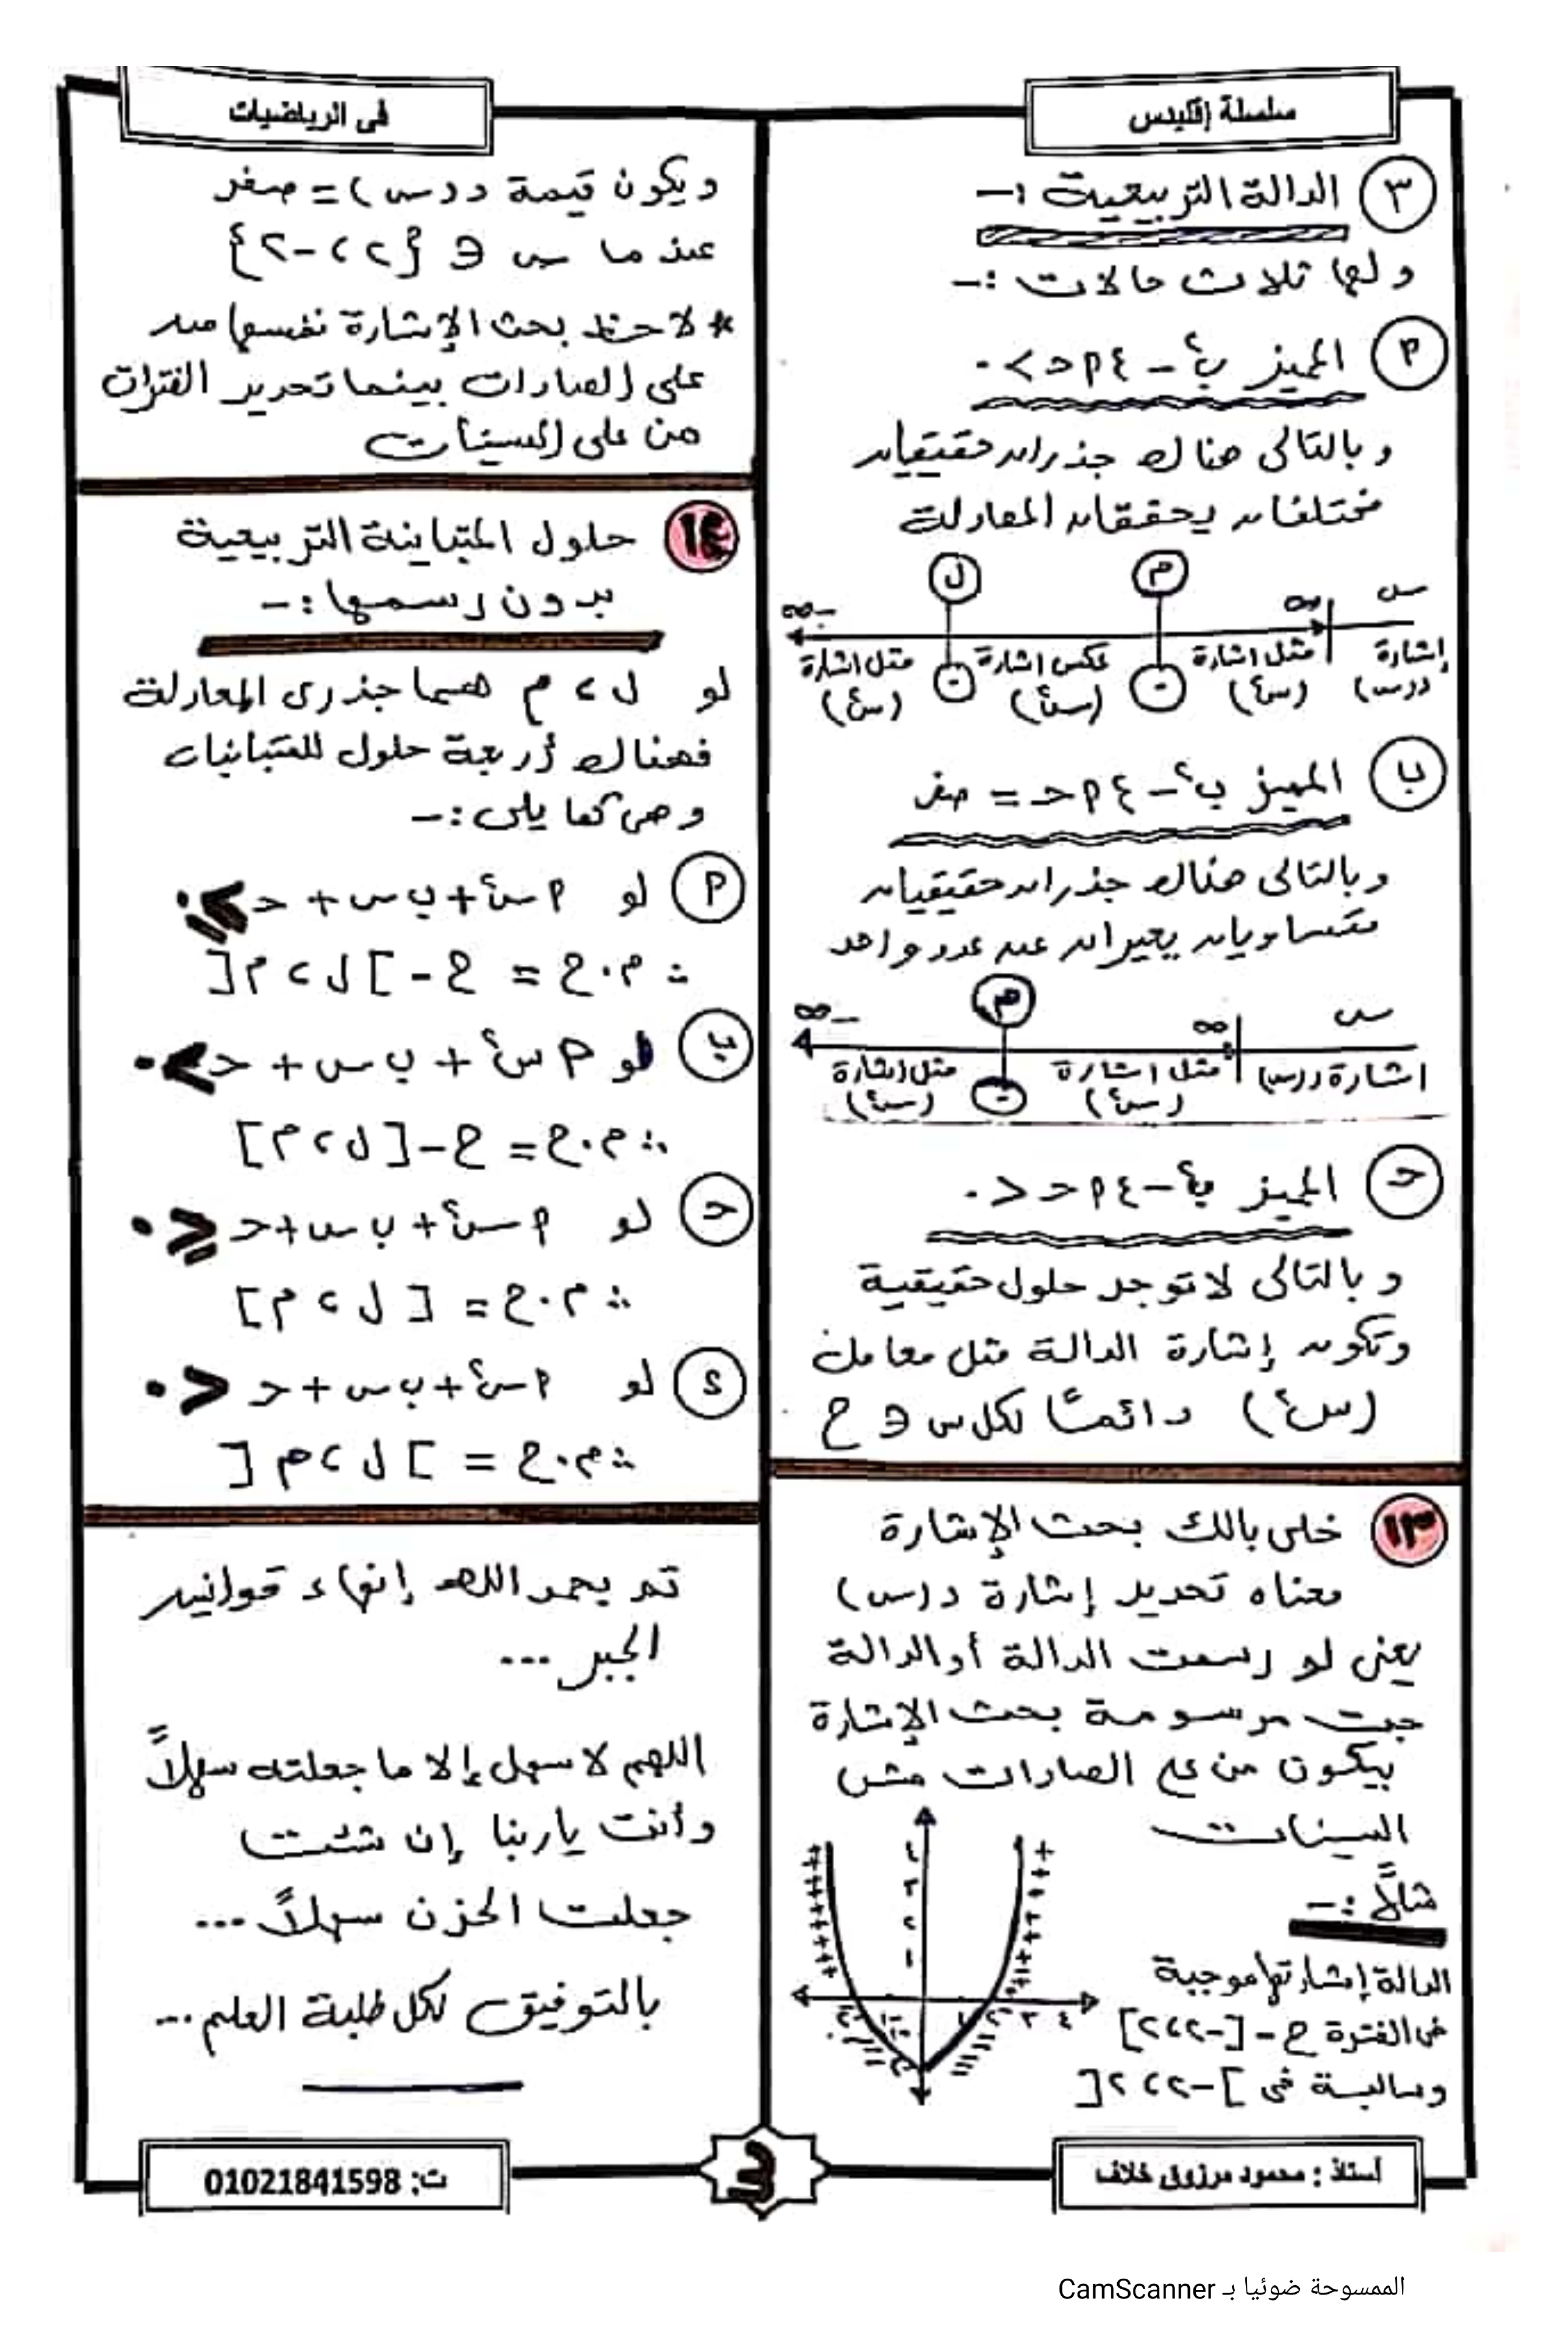 سلسلة إقليدس
فى الرياضيات
٣ الدالة التربيعية :-
ولها ثلاث حالات :-
٢ المميز ب٢ - ٤ ٢ حـ > ٠
وبالتالى هناك جذران حقيقيان
مختلفان يحققان المعادلة
م ل
س ∞ -∞
إشارة د(س) مثل اشارة (س٢) عكس اشارة (س٢) مثل اشارة (س٢)
ب المميز ب٢ - ٤ ٢ حـ = صفر
وبالتالى هناك جذران حقيقيان
متساويان يعبران عن عدد واحد
م
س ∞ -∞
اشارة د(س) مثل اشارة (س٢) مثل اشارة (س٢)
حـ المميز ب٢ - ٤ ٢ حـ < ٠
وبالتالى لا توجد حلول حقيقية
وتكون إشارة الدالة مثل معامل
(س٢) دائمًا لكل س ∈ ح
١٣ خلى بالك بحث الإشارة
معناه تحديد إشارة د(س)
يعنى لو رسمت الدالة أو الدالة
جبت مرسومة بحث الإشارة
بيكون من على الصادات مش
السينات
مثلاً :-
الدالة إشارتها موجبة
فى الفترة ح - [-٢ ، ٢]
وسالبة فى ]-٢ ، ٢[
ويكون قيمة د(س) = صفر
عندما س ∈ {٢ ، -٢}
* لاحظ بحث الإشارة نفسها من
على الصادات بينما تحديد الفترات
من على السينات
١٤ حلول المتباينة التربيعية
بدون رسمها :-
لو ل ، م هما جذرى المعادلة
فهناك أربعة حلول للمتباينات
وهى كما يلى :-
٢ لو ٢س٢ + ب س + حـ ≥ ٠
∴ م.ح = ح - ]ل ، م[
ب لو ٢س٢ + ب س + حـ > ٠
∴ م.ح = ح - [ل ، م]
حـ لو ٢س٢ + ب س + حـ ≤ ٠
∴ م.ح = [ل ، م]
د لو ٢س٢ + ب س + حـ < ٠
∴ م.ح = ]ل ، م[
تم بحمد الله إنهاء قوانين
الجبر ...
اللهم لا سهل إلا ما جعلته سهلاً
وأنت ياربنا إن شئت
جعلت الحزن سهلاً ...
بالتوفيق لكل طلبة العلم ...
أستاذ : محمود مرزوق خلاف
٣
ت: 01021841598
الممسوحة ضوئيا بـ CamScanner